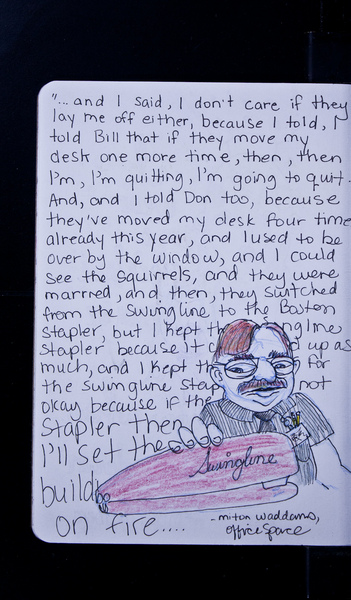 "... and I said, I don't care if they
lay me off either, because I told, I
told Bill that if they move my
desk one more time, then, then
I'm, I'm quitting, I'm going to quit.
And, and I told Don too, because
they've moved my desk four time
already this year, and I used to be
over by the window, and I could
see the squirrels, and they were
marrred, and then, they switched
from the Swingline to the Boston
Stapler, but I kept th ngline
Stapler because it d up as
much, and I kept th for
the swingline stap not
okay because if the
Stapler then
I'll set the
build
on fire....
Swingline
- milton waddams,
office space